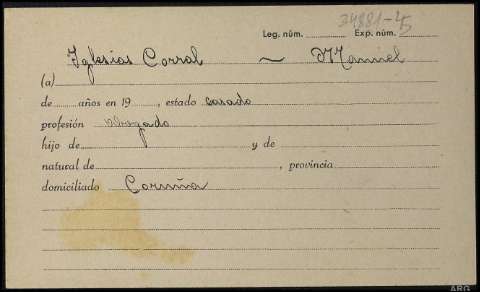 34881-45
Leg. núm. Exp. núm.
Iglesias Corral ~ Manuel
(a)
de años en 19 , estado casado
profesión abogado
hijo de y de
natural de , provincia
domiciliado Coruña
ARG